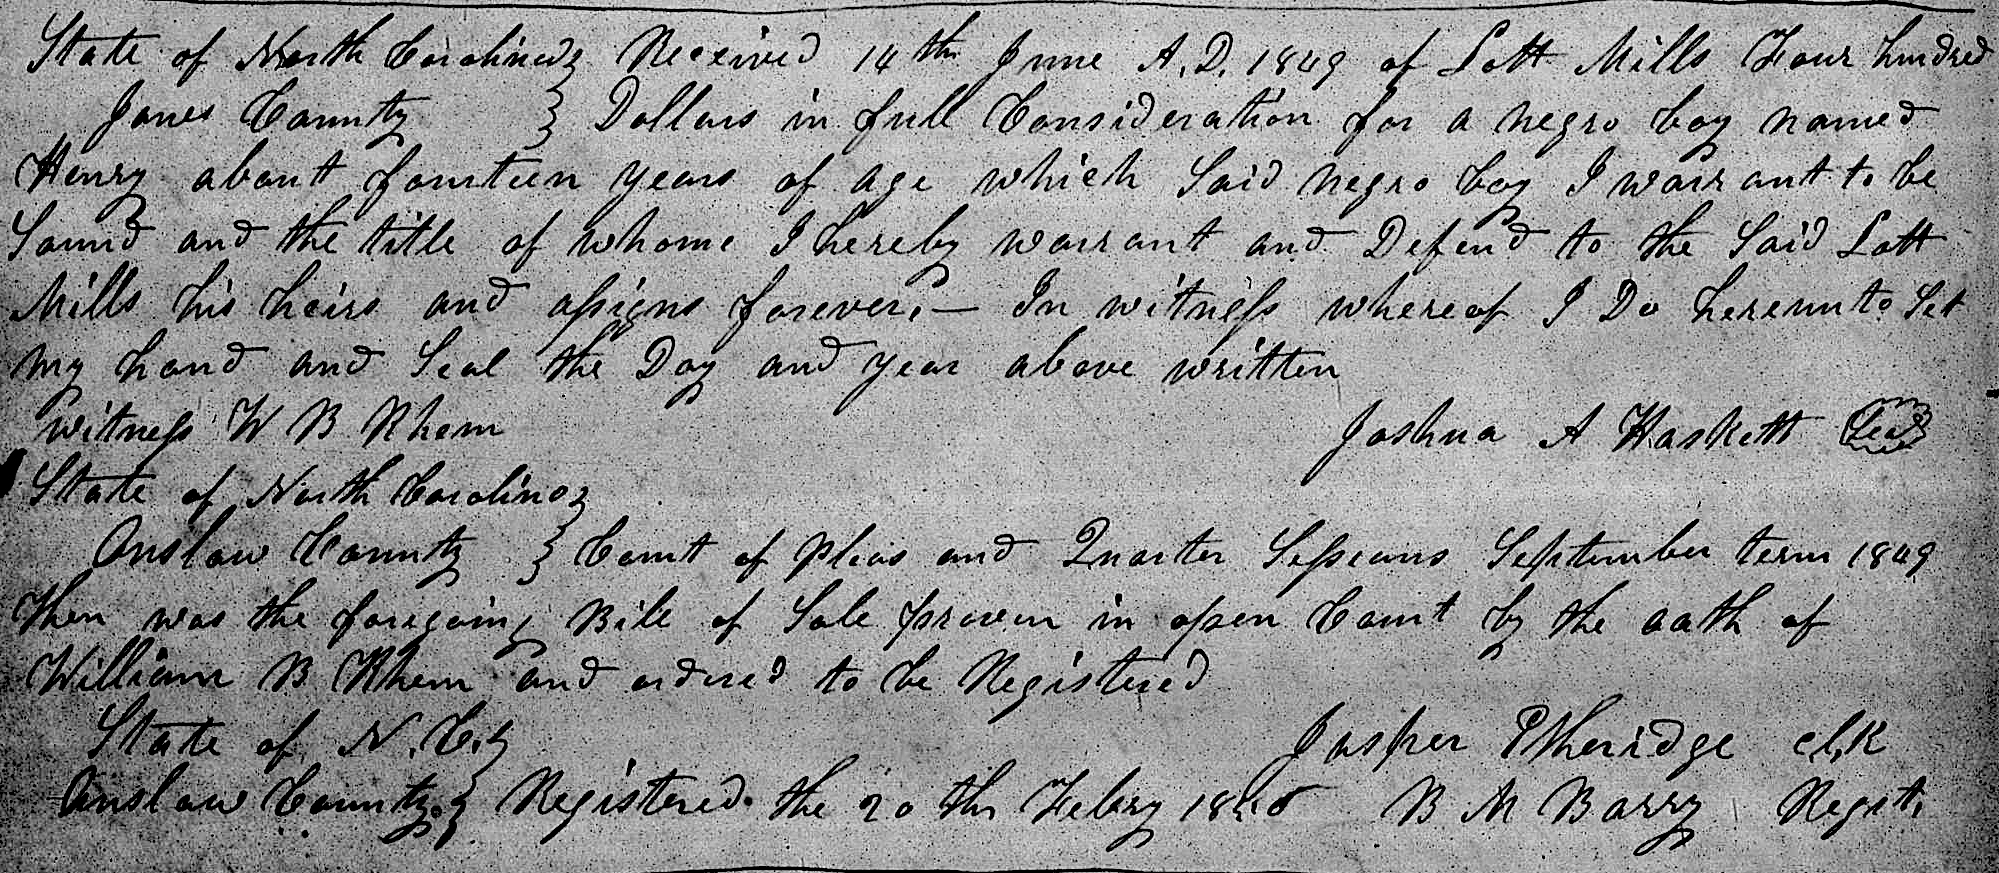 State of North Carolina } Received 14th June A.D. 1849 of Lott Mills Four hundred
Jones County } Dollars in full Consideration for a negro boy named
Henry about fourteen years of age which Said negro boy I warrant to be
Sound and the title of whome I hereby warrant and Defend to the Said Lott
Mills his heirs and assigns forever, — In witness whereof I Do hereunto Set
my hand and Seal the Day and year above written
Witness W B Rhem Joshua A Haskett Seal
State of North Carolina }
Onslow County } Court of Pleas and Quarter Sessions September term 1849
Then was the foregoing Bill of Sale proven in open Court by the oath of
William B Rhem and ordered to be Registered
State of N. C. } Jasper Etheridge clk
Onslow County } Registered the 20th Febry 1850 B M Barry Regst.